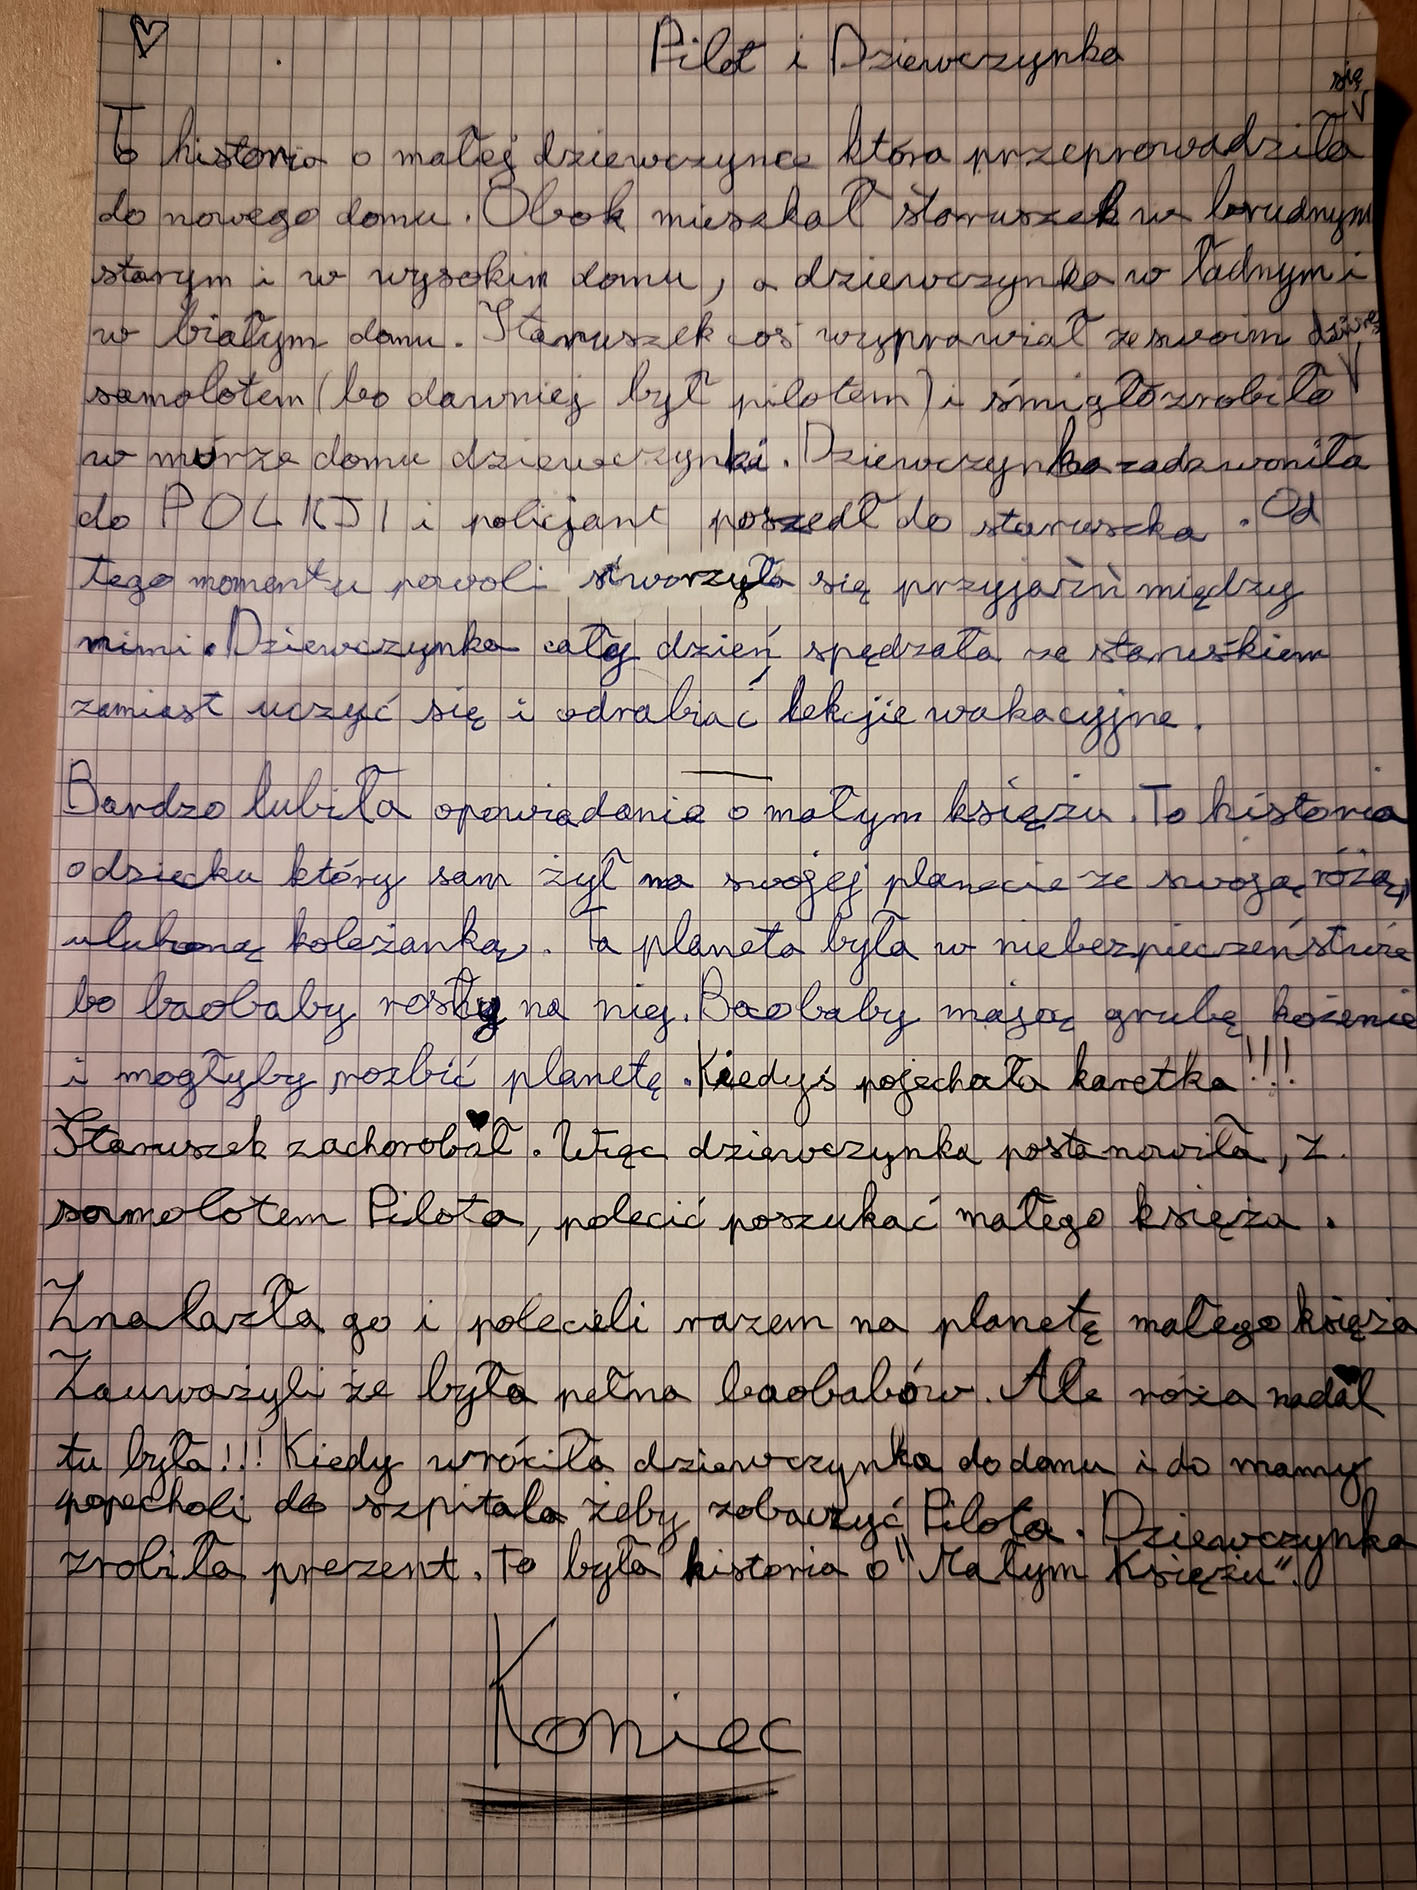 Pilot i Dziewczynka
się
To historia o małej dziewczynce która przeprowadziła
do nowego domu. Obok mieszkał staruszek w brudnym
starym i w wysokim domu, a dziewczynka w ładnym i
w białym domu. Staruszek coś wyprawiał ze swoim
samolotem (bo dawniej był pilotem) i śmigło zrobiło
w murze domu dziewczynki. Dziewczynka zadzwoniła
do POLICJI i policjant poszedł do staruszka. Od
tego momentu powoli stworzyła się przyjaźń między
nimi. Dziewczynka cały dzień spędzała ze staruśkiem
zamiast uczyć się i odrabiać lekcjie wakacyjne.
Bardzo lubiła opowiadania o małym księżu. To historia
o dziecku który sam żył na swojej planecie ze swoją różą,
ulubioną koleżanką. Ta planeta była w niebezpieczeństwie
bo baobaby rosły na niej. Baobaby mająą grubę kożenie
i mogłyby rozbić planetę. Kiedyś pojechała karetka!!!
Staruszek zachorobał. Więc dziewczynka postanowiła, z
samolotem Pilota, polecić poszukać małego księża.
Znalazła go i polecieli razem na planetę małego księża
Zauważyli że była pełna baobabów. Ale róża nadal
tu była!!! Kiedy wróciła dziewczynka do domu i do mamy
popecholi do szpitala żeby zobaczyć Pilota. Dziewczynka
zrobiła prezent. To była historia o "Małym Księżu".
Koniec